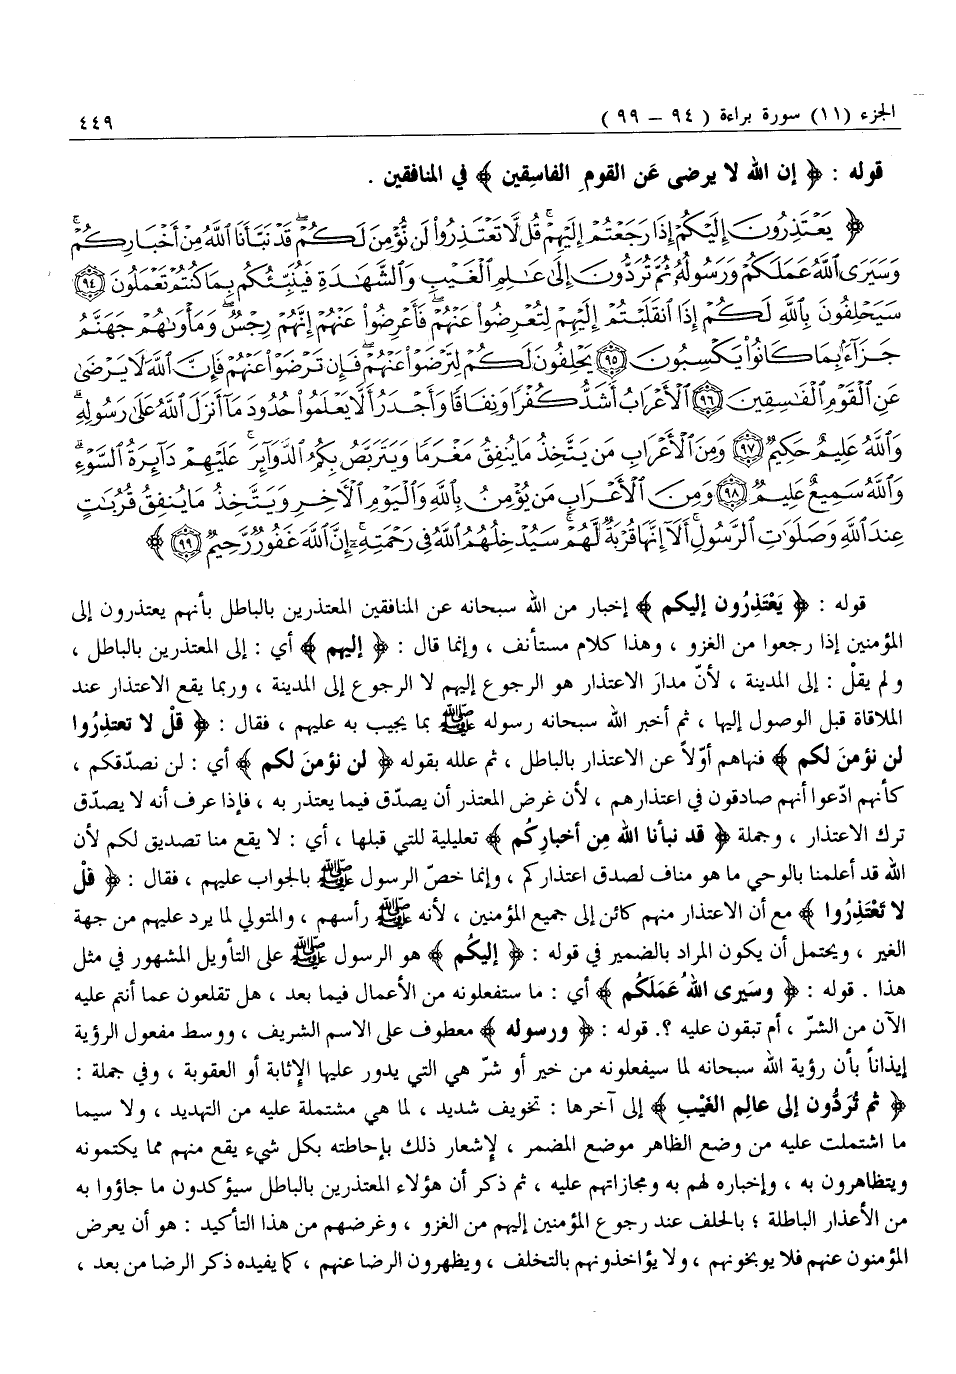 الجزء (١١) سورة براءة ( ٩٤ – ٩٩ ) ٤٤٩
قوله : ﴿ إن الله لا يرضى عَن القومِ الفاسِقين ﴾ في المنافقين .
﴿ يَعْتَذِرُونَ إِلَيْكُمْ إِذَا رَجَعْتُمْ إِلَيْهِمْ ۚ قُل لَّا تَعْتَذِرُوا۟ لَن نُّؤْمِنَ لَكُمْ ۖ قَدْ نَبَّأَنَا ٱللَّهُ مِنْ أَخْبَارِكُمْ ۚ
وَسَيَرَى ٱللَّهُ عَمَلَكُمْ وَرَسُولُهُۥ ثُمَّ تُرَدُّونَ إِلَىٰ عَـٰلِمِ ٱلْغَيْبِ وَٱلشَّهَـٰدَةِ فَيُنَبِّئُكُم بِمَا كُنتُمْ تَعْمَلُونَ ٩٤
سَيَحْلِفُونَ بِٱللَّهِ لَكُمْ إِذَا ٱنقَلَبْتُمْ إِلَيْهِمْ لِتُعْرِضُوا۟ عَنْهُمْ ۖ فَأَعْرِضُوا۟ عَنْهُمْ ۖ إِنَّهُمْ رِجْسٌ ۖ وَمَأْوَىٰهُمْ جَهَنَّمُ
جَزَآءًۢ بِمَا كَانُوا۟ يَكْسِبُونَ ٩٥ يَحْلِفُونَ لَكُمْ لِتَرْضَوْا۟ عَنْهُمْ ۖ فَإِن تَرْضَوْا۟ عَنْهُمْ فَإِنَّ ٱللَّهَ لَا يَرْضَىٰ
عَنِ ٱلْقَوْمِ ٱلْفَـٰسِقِينَ ٩٦ ٱلْأَعْرَابُ أَشَدُّ كُفْرًا وَنِفَاقًا وَأَجْدَرُ أَلَّا يَعْلَمُوا۟ حُدُودَ مَآ أَنزَلَ ٱللَّهُ عَلَىٰ رَسُولِهِۦ ۗ
وَٱللَّهُ عَلِيمٌ حَكِيمٌ ٩٧ وَمِنَ ٱلْأَعْرَابِ مَن يَتَّخِذُ مَا يُنفِقُ مَغْرَمًا وَيَتَرَبَّصُ بِكُمُ ٱلدَّوَآئِرَ ۚ عَلَيْهِمْ دَآئِرَةُ ٱلسَّوْءِ ۗ
وَٱللَّهُ سَمِيعٌ عَلِيمٌ ٩٨ وَمِنَ ٱلْأَعْرَابِ مَن يُؤْمِنُ بِٱللَّهِ وَٱلْيَوْمِ ٱلْأَخِرِ وَيَتَّخِذُ مَا يُنفِقُ قُرُبَـٰتٍ
عِندَ ٱللَّهِ وَصَلَوَٰتِ ٱلرَّسُولِ ۚ أَلَآ إِنَّهَا قُرْبَةٌ لَّهُمْ ۚ سَيُدْخِلُهُمُ ٱللَّهُ فِى رَحْمَتِهِۦٓ ۗ إِنَّ ٱللَّهَ غَفُورٌ رَّحِيمٌ ٩٩ ﴾
قوله : ﴿ يَعْتَذِرُون إليكم ﴾ إخبار من الله سبحانه عن المنافقين المعتذرين بالباطل بأنهم يعتذرون إلى
المؤمنين إذا رجعوا من الغزو ، وهذا كلام مستأنف ، وإنما قال : ﴿ إليهم ﴾ أي : إلى المعتذرين بالباطل ،
ولم يقلْ : إلى المدينة ، لأنّ مدارَ الاعتذار هو الرجوع إليهم لا الرجوع إلى المدينة ، وربما يقع الاعتذار عند
الملاقاة قبل الوصول إليها ، ثم أخبر الله سبحانه رسوله ﷺ بما يجيب به عليهم ، فقال : ﴿ قلْ لا تعتذِرُوا
لن نؤمنَ لكم ﴾ فنهاهم أوّلاً عن الاعتذار بالباطل ، ثم علله بقوله ﴿ لن نؤمنَ لكم ﴾ أي : لن نصدّقكم ،
كأنهم ادّعوا أنهم صادقون في اعتذارهم ، لأن غرض المعتذر أن يصدّق فيما يعتذر به ، فإذا عرف أنه لا يصدّق
ترك الاعتذار ، وجملة ﴿ قد نبأنا الله مِن أخبارِكُم ﴾ تعليلية للتي قبلها ، أي : لا يقع منا تصديق لكم لأن
الله قد أعلمنا بالوحي ما هو مناف لصدق اعتذاركم ، وإنما خصّ الرسول ﷺ بالجواب عليهم ، فقال : ﴿ قلْ
لا تَعْتَذِرُوا ﴾ مع أن الاعتذار منهم كائن إلى جميع المؤمنين ، لأنه ﷺ رأسهم ، والمتولي لما يرد عليهم من جهة
الغير ، ويحتمل أن يكون المراد بالضمير في قوله : ﴿ إليكُم ﴾ هو الرسول ﷺ على التأويل المشهور في مثل
هذا . قوله : ﴿ وسَيرى اللهُ عَمَلَكُم ﴾ أي : ما ستفعلونه من الأعمال فيما بعد ، هل تقلعون عما أنتم عليه
الآن من الشرّ ، أم تبقون عليه ؟. قوله : ﴿ ورسوله ﴾ معطوف على الاسم الشريف ، ووسط مفعول الرؤية
إيذاناً بأن رؤية الله سبحانه لما سيفعلونه من خير أو شرّ هي التي يدور عليها الإثابة أو العقوبة ، وفي جملة :
﴿ ثم تُرَدُّون إلى عالِم الغَيْبِ ﴾ إلى آخرها : تخويف شديد ، لما هي مشتملة عليه من التهديد ، ولا سيما
ما اشتملت عليه من وضع الظاهر موضع المضمر ، لإشعار ذلك بإحاطته بكل شيء يقع منهم مما يكتمونه
ويتظاهرون به ، وإخباره لهم به ومجازاتهم عليه ، ثم ذكر أن هؤلاء المعتذرين بالباطل سيؤكدون ما جاؤوا به
من الأعذار الباطلة ؛ بالحلف عند رجوع المؤمنين إليهم من الغزو ، وغرضهم من هذا التأكيد : هو أن يعرض
المؤمنون عنهم فلا يوبخونهم ، ولا يؤاخذونهم بالتخلف ، ويظهرون الرضا عنهم ، كما يفيده ذكر الرضا من بعد ،